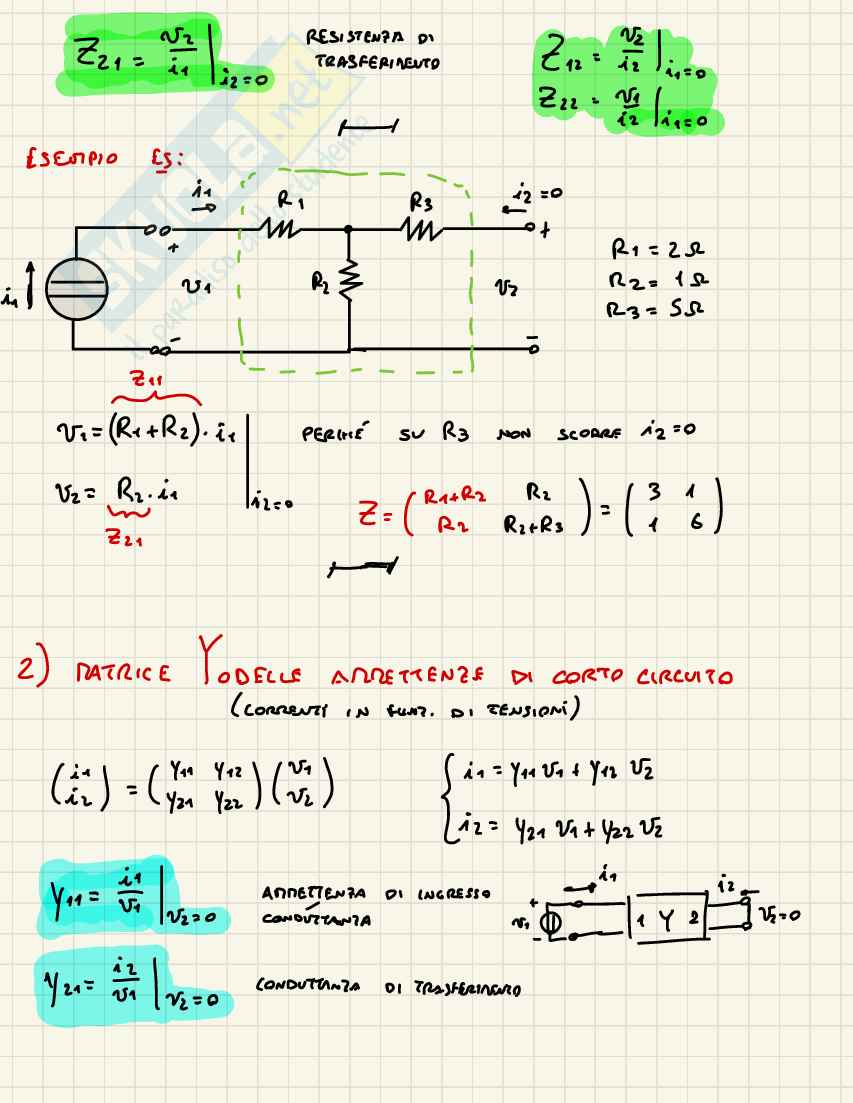 Z21 = v2/i1 |i2=0
RESISTENZA DI
TRASFERIMENTO
Z12 = v2/i2 |i1=0
Z22 = v1/i2 |i1=0
ESEMPIO ES:
i1
R1
R3
i2=0
+
+
i1
v1
R2
v2
-
-
R1 = 2Ω
R2 = 1Ω
R3 = 5Ω
Z11
v1 = (R1+R2) · i1
PERCHÉ SU R3 NON SCORRE i2=0
v2 = R2 · i1 |i2=0
Z21
Z = (R1+R2 R2
R2 R2+R3) = (3 1
1 6)
2) MATRICE Y DELLE AMMETTENZE DI CORTO CIRCUITO
(CORRENTI IN FUNZ. DI TENSIONI)
(i1
i2) = (y11 y12
y21 y22) (v1
v2)
i1 = y11 v1 + y12 v2
i2 = y21 v1 + y22 v2
y11 = i1/v1 |v2=0
AMMETTENZA DI INGRESSO
CONDUTTANZA
i1
i2
+
v1
-
1 Y 2
v2=0
y21 = i2/v1 |v2=0
CONDUTTANZA DI TRASFERIMENTO
SKUOLA.net
il paradiso dello studente